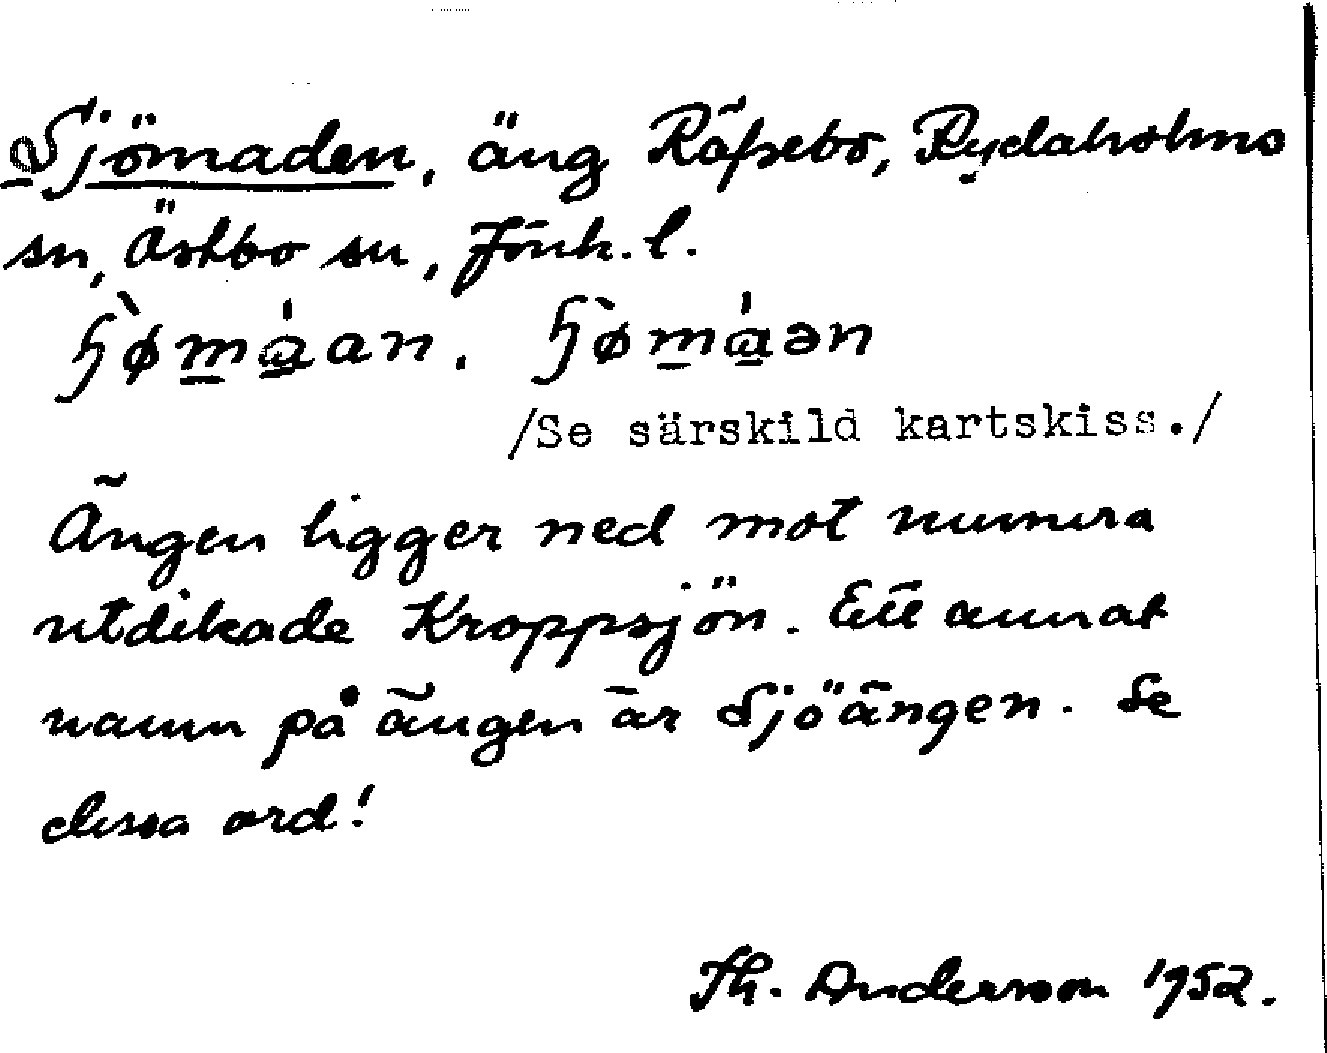 Sjömaden, äng Räpsebo, Rydaholms
sn, Östbo sn, Jönk. l.
ɧø̀má̱an. ɧø̀má̱ən
/Se särskild kartskiss./
Ängen ligger ned mot numera
utdikade Kroppsjön. Ett annat
namn på ängen är Sjöängen. Se
dessa ord!
Th. Andersson 1952.